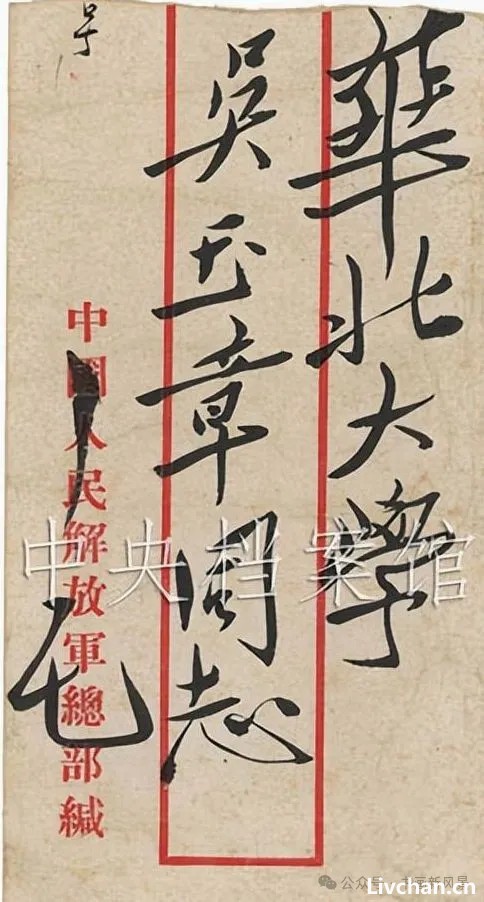 華北大學
吳玉章同志
毛
中國人民解放軍總部緘
中央档案馆
公众号·书画新风景
Livchan.cn